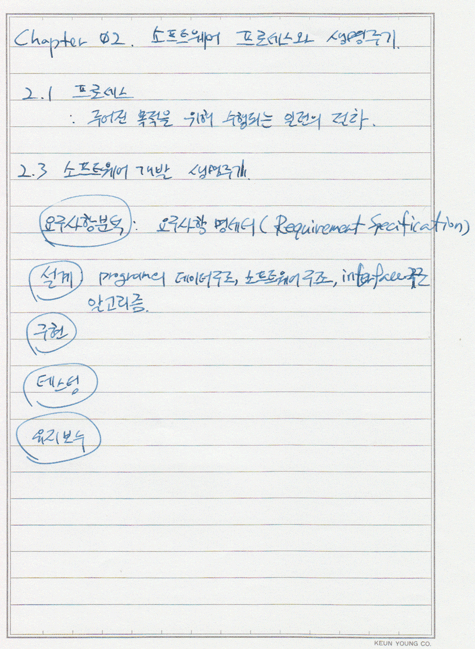 Chapter 02. 소프트웨어 프로세스와 생명주기.
2.1 프로세스
: 주어진 목적을 위해 수행되는 일련의 절차.
2.3 소프트웨어 개발 생명주기.
요구사항분석 : 요구사항 명세서 (Requirement Specification)
설계 program의 데이터구조, 소프트웨어구조, interface
알고리즘.
구현
테스팅
유지보수
KEUN YOUNG CO.